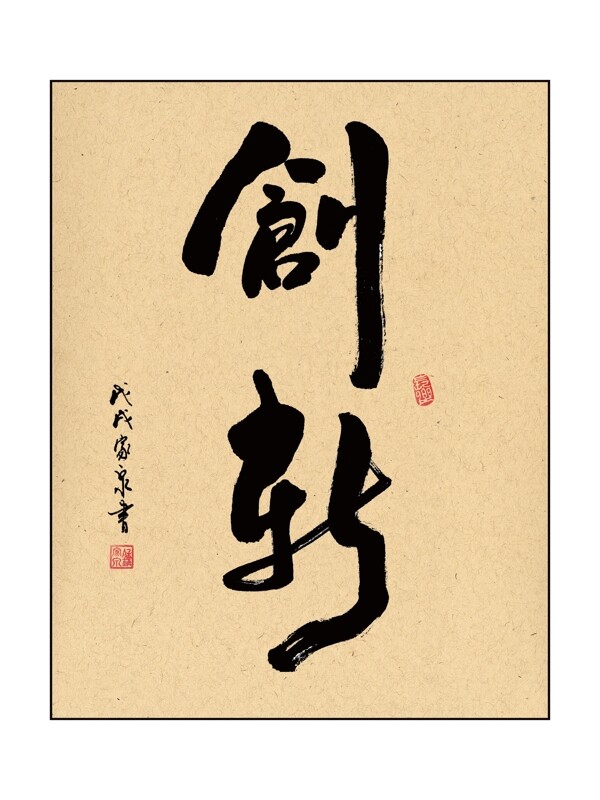 創新
戊戌家泉書